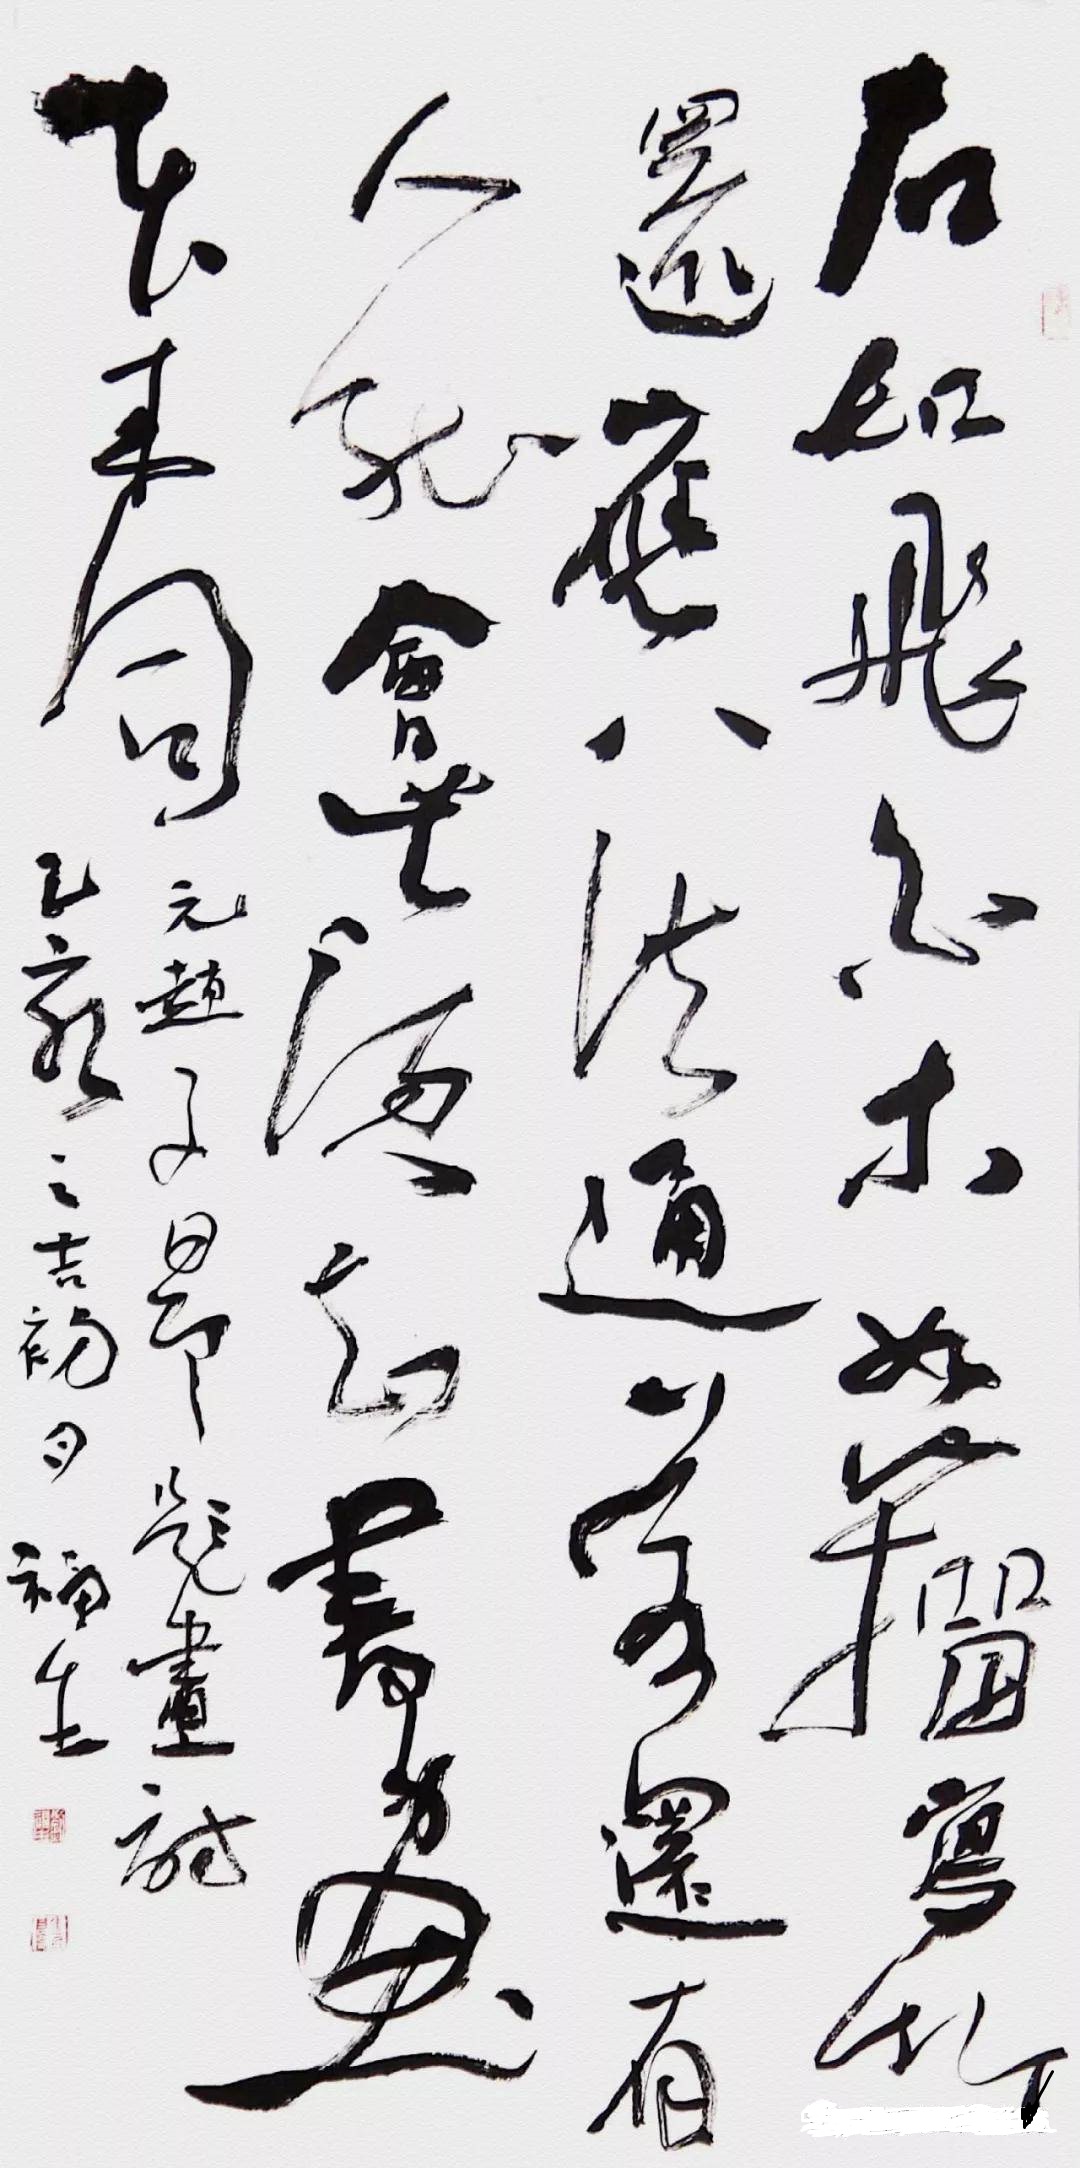 石如飛白木如籀寫竹
還應八法通若還有
人能會此須知書畫
本来同
元趙子昂題畫詩
己亥之吉 福生